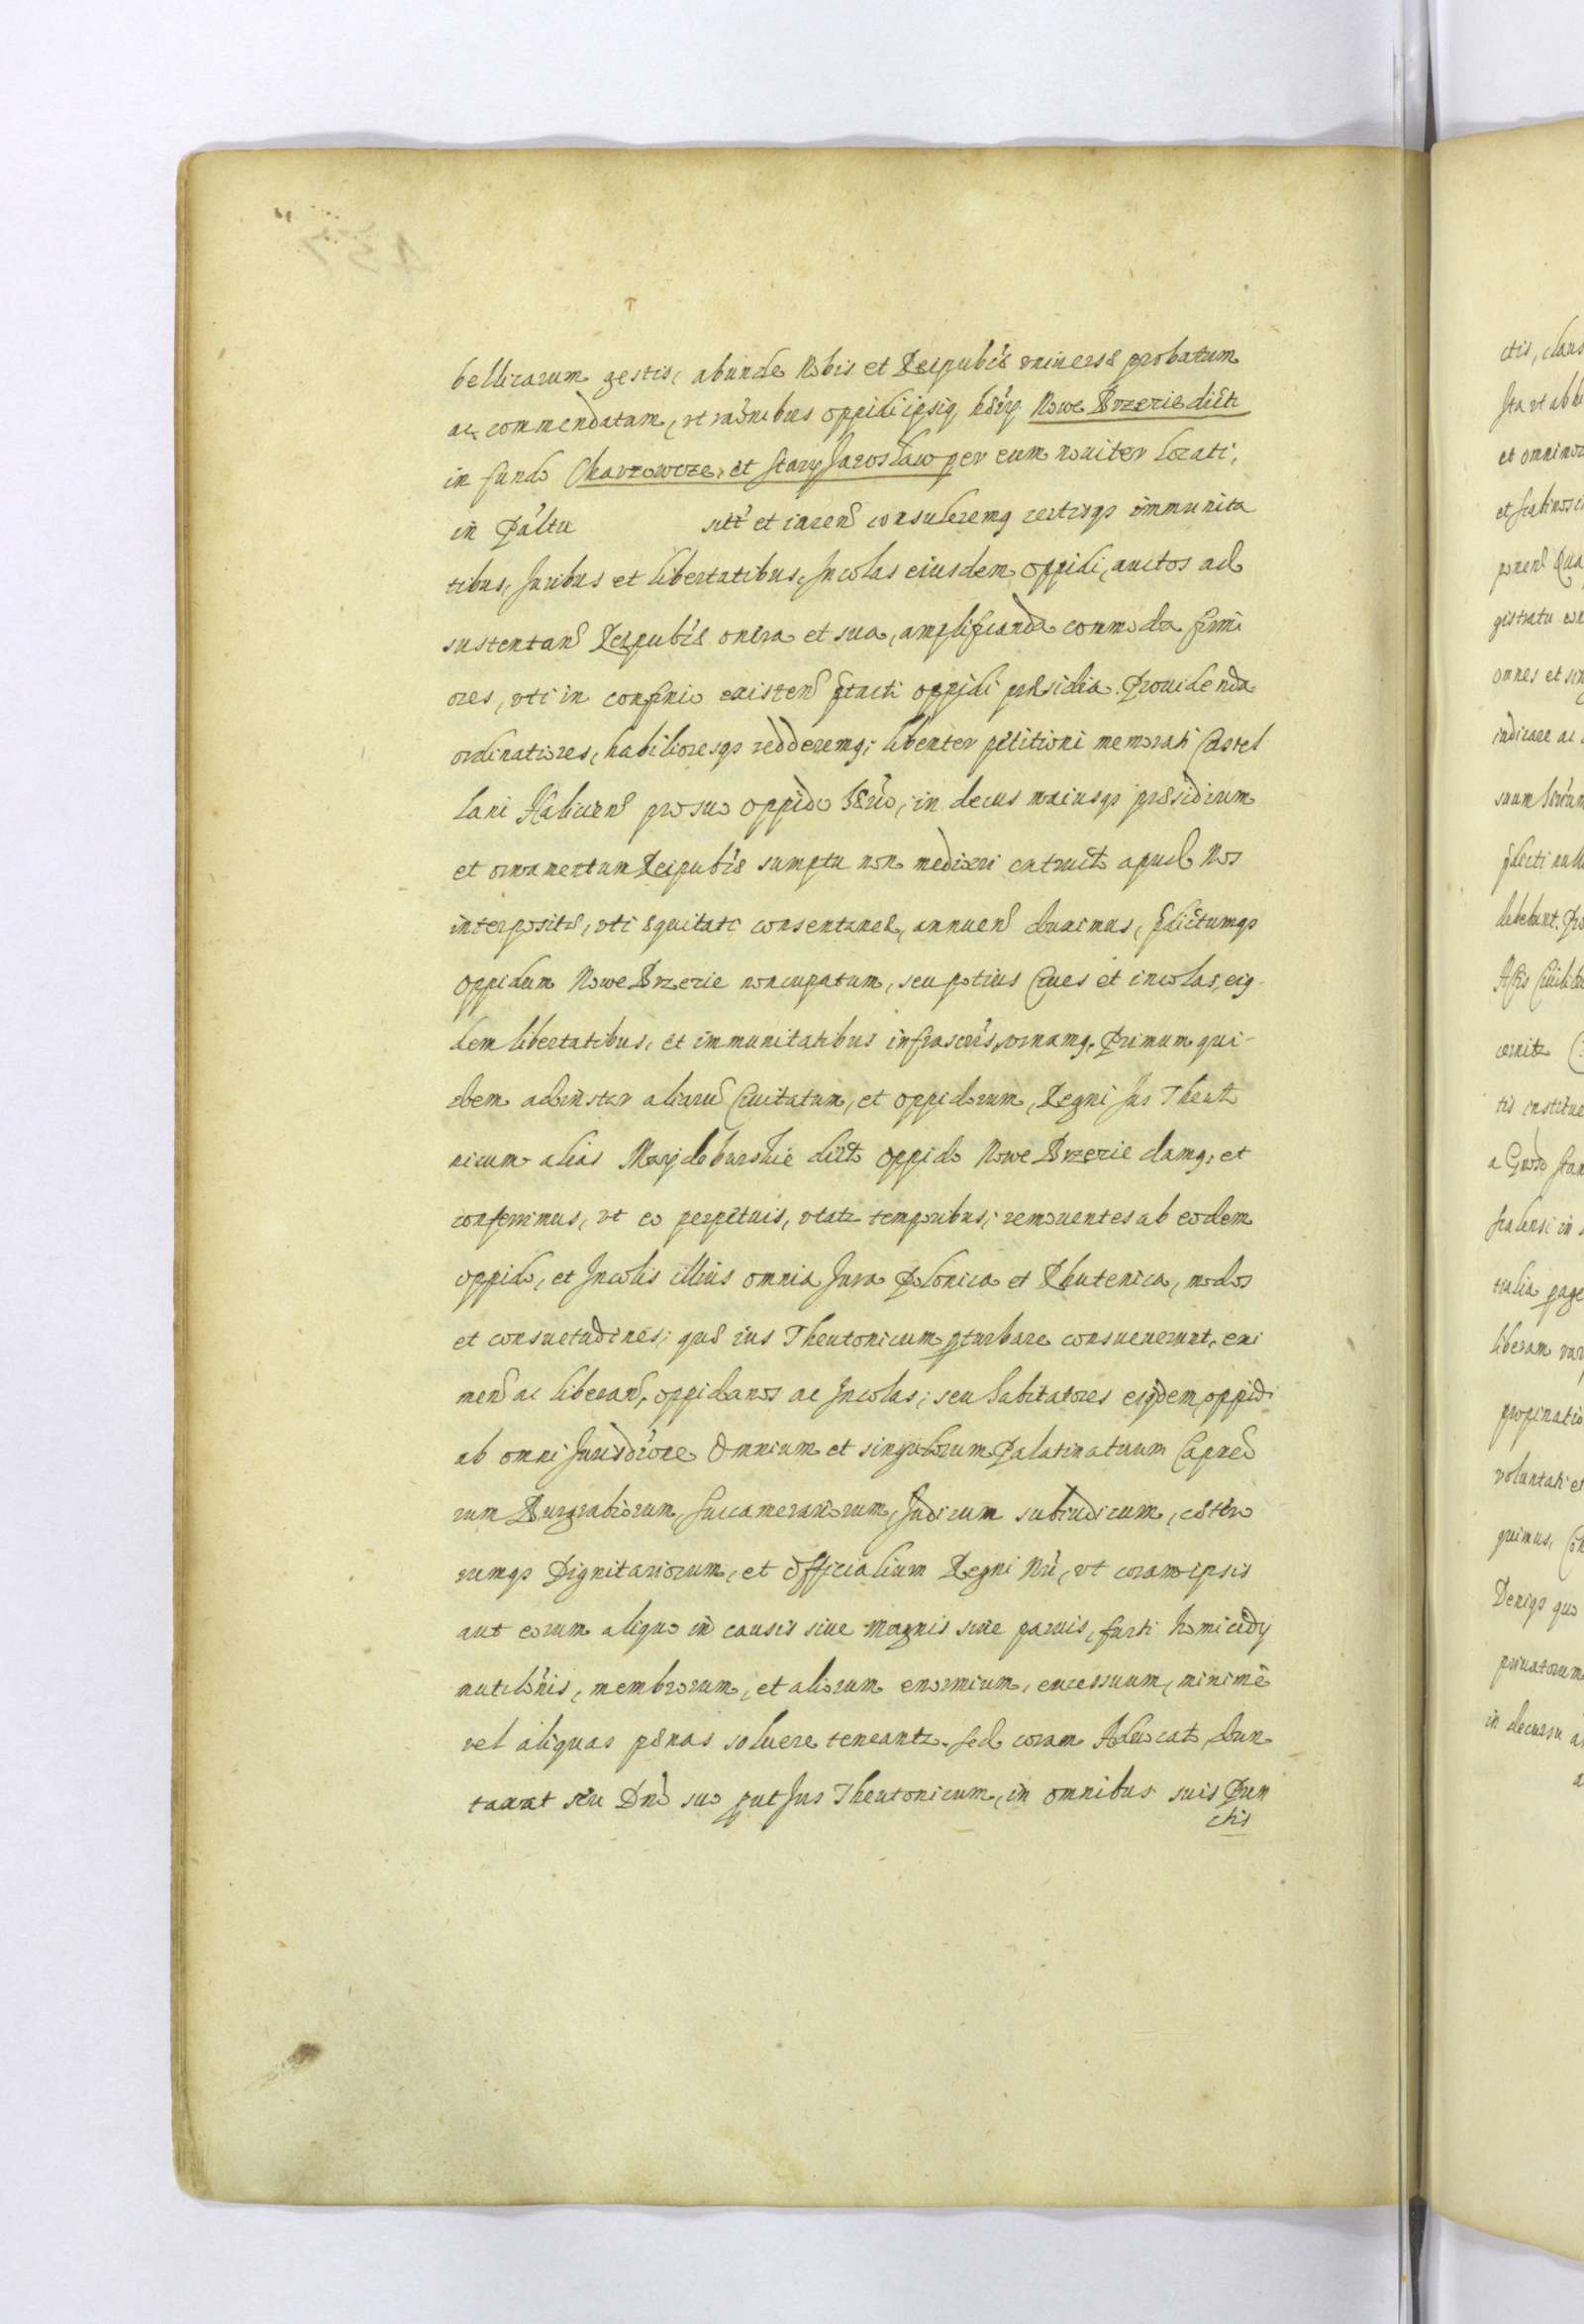 bellicarum gestis, abunde Nobis et Reipublȩ vniversę probatum
ac commendatam, vt raõnibus oppidi ipsiq hęrῡ Nowe Brzezie dicti
in fundo Charzowcze, et Stary Jarosław per eum noviter locati,
in Pal̃tu sitt̃ et iacen̄ consuleremq certisqȝ immunita
tibus, Juribus et libertatibus, Incolas eiusdem oppidi, auctos ad
sustentan̄ Reipubl̃ę onera et sua, amplificanda commoda firmi
ores, vti in confinio existen̄ p̄tacti oppidi pręsidia. Providenda
ordinatiores, habilioresqȝ redderemq; libenter petitioni memorati Castel
lani Halicien̄ pro suo oppido hęr̃io, in decus maiusqȝ pręsidium
et ornamentum Reipubl̃ę sumptu non mediocri extructo apud Nos
interpositę, vti ęquitati consentaneę, annuen̄ duximus, p̄dictumqȝ
oppidum Nowe Brzezie noncupatum, seu potius Ciues et incolas, eiq-
dem libertatibus, et immunitatibus infrascr̃is, ornamq. Primum qui-
dem ad instar aliarū Civitatum, et oppidorum, Regni Jus Theuto
nicum alias Maydeburskie dict̃o oppido Nowe Brzezie damq, et
conferrimus, vt eo perpetuis, vtatr temporibus; removentes ab eodem
oppido, et Incolis illius omnia Jura Polonica et Rhutenica, modos
et consuetudines; quę ius Theutonicum pturbare consueuerunt, exi
men̄ ac liberan̄, oppidanos ac Incolas; seu habitatores eiqdem oppidi
ab omni Jurisdr̃ione Omnium et singulorum Palatinatuum Capneo
rum Burgrabiorum, Succamerariorum, Judicum subiudicum, cętero
rumqȝ Dignitariorum, et officialium Regni Nri, vt coram ipsis
aut eorum aliquo in causis siue magnis siue paruis, furti homicidij
mutilõnis, membrorum, et aliorum enormium, excessuum, minimè
vel aliquas pęnas soluere teneantr. Sed coram Aduocato dun
taxat seu Dnō suo put Jus Theutonicum, in omnibus suis Pun
ctis